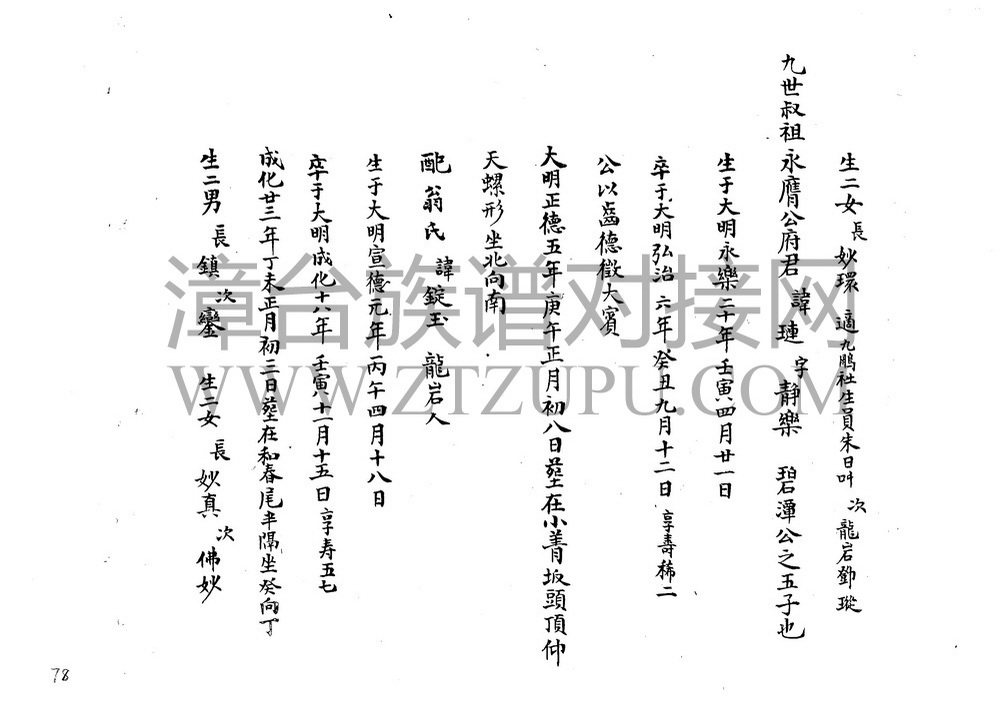 生二女 長 妙環 適九鵬社生員朱日叫 次 龍岩鄧瑽
九世叔祖永膺公府君 諱 璉 字 靜樂 碧潭公之五子也
生于大明永樂二十年壬寅四月廿一日
卒于大明弘治六年癸丑九月十二日 享壽稀二
公以齒德徵大賓
大明正德五年庚午正月初八日塟在小菁坂頭頂仰
天螺形坐北向南
配翁氏 諱錠玉 龍岩人
生于大明宣德元年丙午四月十八日
卒于大明成化十八年壬寅十二月十五日 享寿五七
成化廿三年丁未正月初三日塟在和春尾半隔坐癸向丁
生二男 長鎮 次鑾 生二女 長妙真 次佛妙
漳台族谱对接网
WWW.ZTZUPU.COM
78